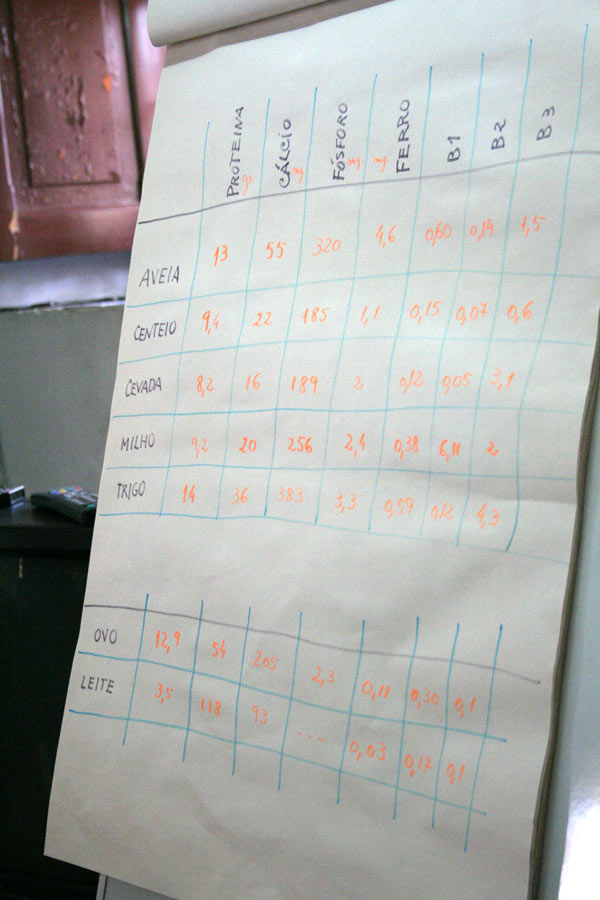 PROTEINA gr. CÁLCIO mg FÓSFORO mg mg FERRO B1 B2 B3
AVEIA 13 55 320 4,6 0,60 0,14 1,5
CENTEIO 9,4 22 185 1,1 0,15 0,07 0,6
CEVADA 8,2 16 189 2 0,12 0,05 3,1
MILHO 9,2 20 256 2,4 0,38 0,11 2
TRIGO 14 36 383 3,3 0,57 0,12 4,3
OVO 12,9 54 205 2,3 0,11 0,30 0,1
LEITE 3,5 118 93 --- 0,03 0,17 0,1